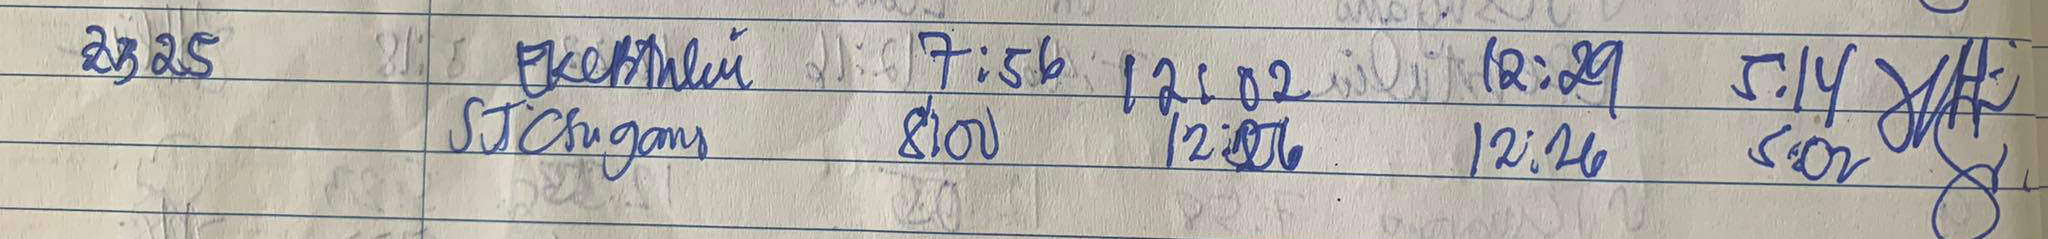 2325 7:56 12:02 12:29 5:14
SJ 8:00 12:06 12:26 5:02